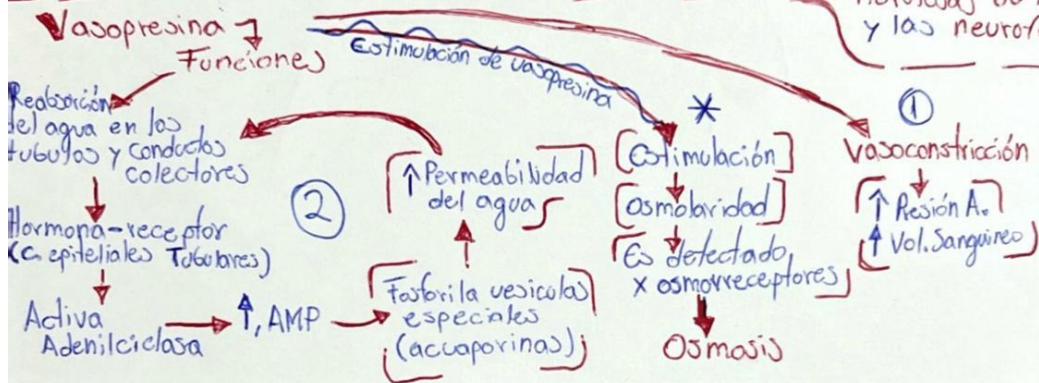 Vasopresina
Funciones
Estimulación de vasopresina
y las neurof
Reabsorción
del agua en los
tubulos y conductos
colectores
Hormona-receptor
(c. epiteliales Tubulares)
Activa
Adenilciclasa
↑, AMP
Fosforila vesiculas
especiales
(accuaporinas)
↑ Permeabilidad
del agua
2
*
[Estimulación]
[Osmolaridad]
[Es detectado
x osmorreceptores]
Osmosis
1
Vasoconstricción
↑ Resión A.
↑ Vol. Sanguineo